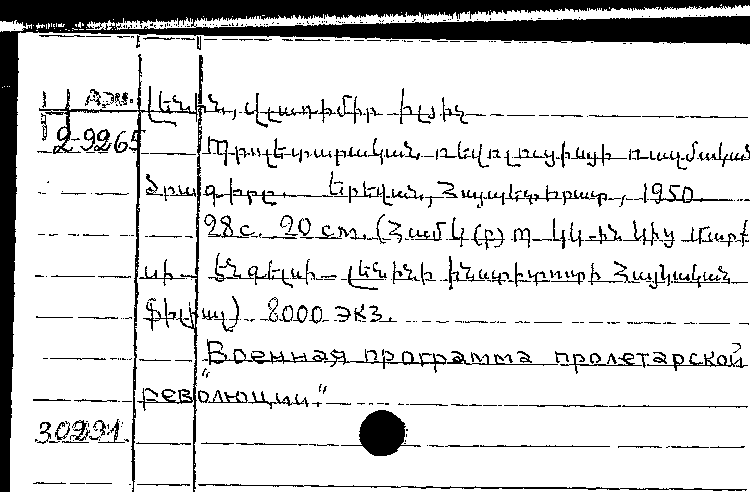 Արմ. Լենին, Վլադիմիր Իլյիչ
2-9265 Պրոլետարական ռեվոլյուցիայի ռազմական
ծրագիրը. Երևան, Հայպետհրատ, 1950.
28 с. 20 cm. (Համկ(բ)Պ Կկ-ին կից Մարքսի
սի-Էնգելսի-Լենինի ինստիտուտի Հայկական
ֆիլիալ) 8000 экз.
"Военная программа пролетарской
революции."
30291